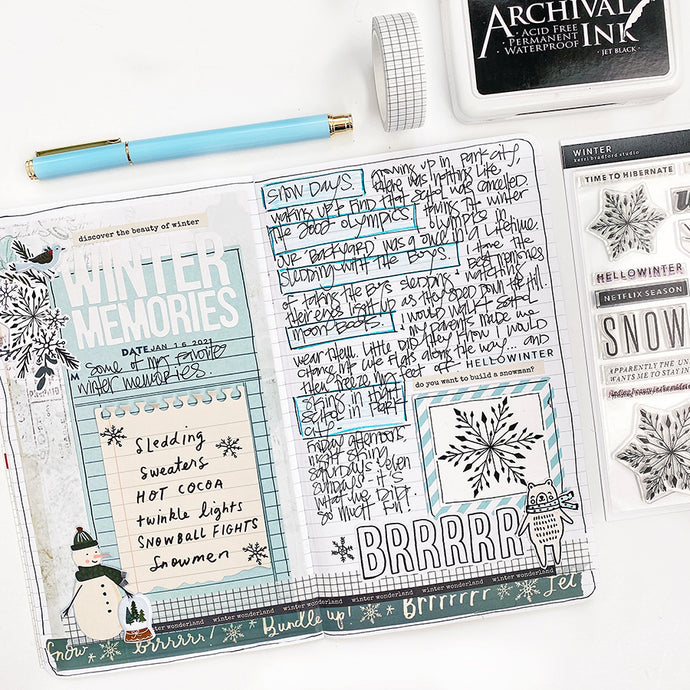 ARCHIVAL
INK
ACID FREE
PERMANENT
WATERPROOF
· JET BLACK ·
discover the beauty of winter
WINTER
MEMORIES
DATE JAN 16 2021
some of my favorite
winter memories
Sledding
Sweaters
HOT COCOA
twinkle lights
SNOWBALL FIGHTS
Snowmen
SNOW DAYS. Growing up in Park City,
there was nothing like
waking up & find that school was cancelled
THE 2002 OLYMPICS. Having the winter
olympics in
our backyard was a once in a lifetime.
Sledding with the Boys. I have the
best memories
of taking the boys sledding & watching
their eyes light up as they sped down the hill.
moon Boots. I would walk to school
& my parents made me
wear them. Little did they know I would
change into cute flats along the way... and
then freeze my feet off.
HELLOWINTER
skiing in High
school in Park
City.
Friday afternoons,
night skiing
Saturdays
it's
what we did.
so much fun!
do you want to build a snowman?
BRRRRR
winter wonderland winter wonderland winter wonderland winter wonderland winter wonderland
Snow Brrrrr! Bundle up! Brrrrrrr Let
WINTER
kerri bradford studio
TIME TO HIBERNATE
HELLOWINTER
NETFLIX SEASON
SNOW
APPARENTLY THE UN
WANTS ME TO STAY IN